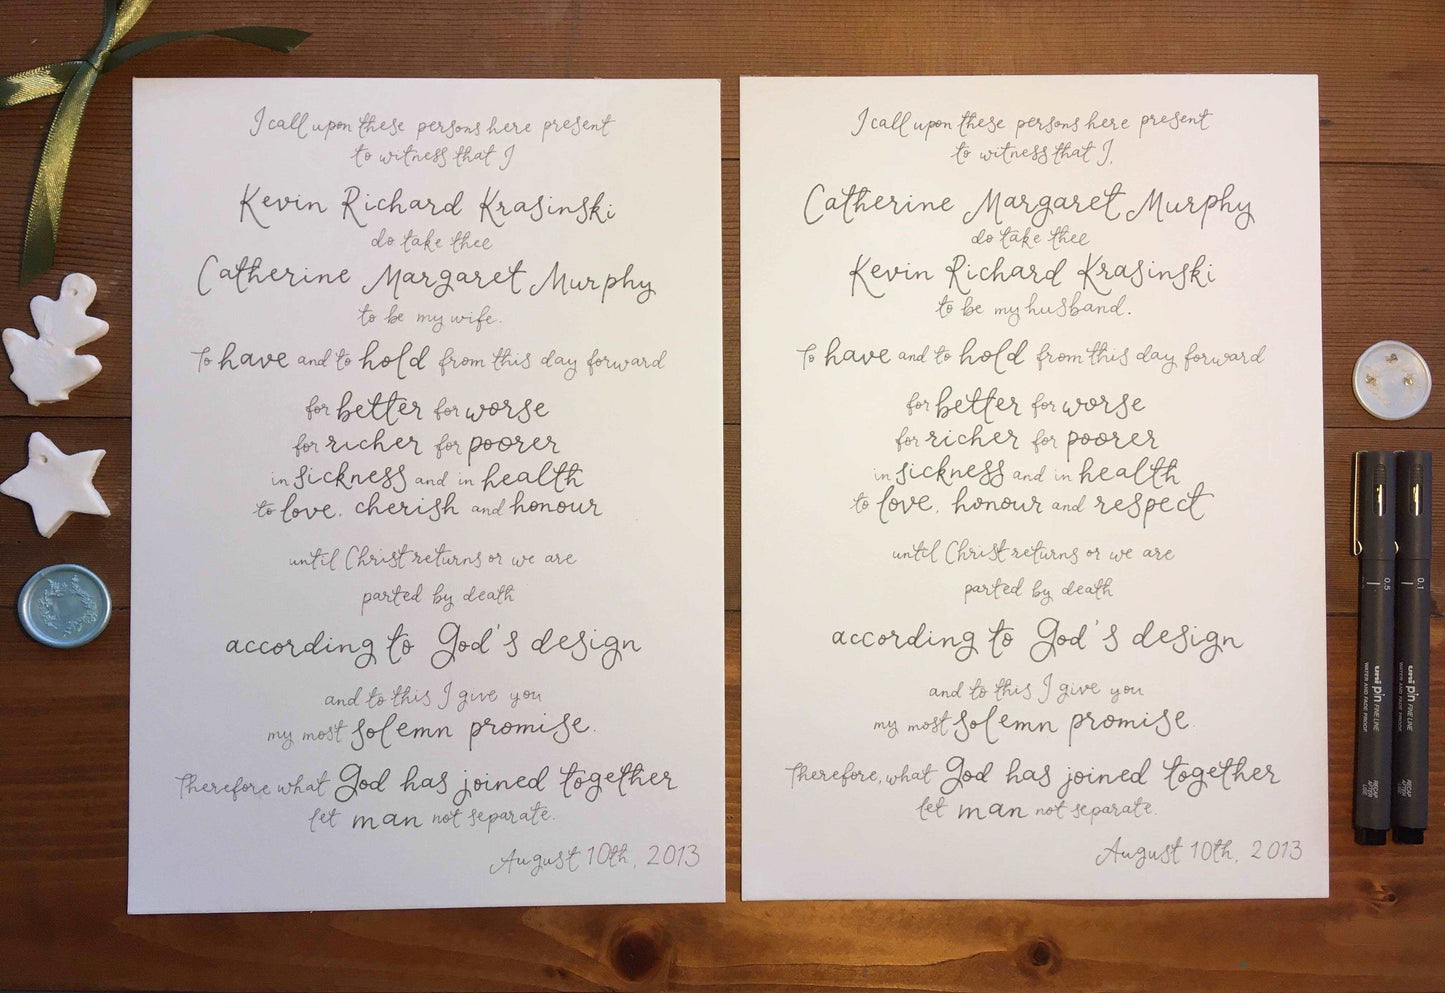 I call upon these persons here present
to witness that I
Kevin Richard Krasinski
do take thee
Catherine Margaret Murphy
to be my wife.
To have and to hold from this day forward
for better for worse
for richer for poorer
in sickness and in health
to love, cherish and honour
until Christ returns or we are
parted by death
according to God's design
and to this I give you
my most solemn promise.
Therefore what God has joined together
let man not separate.
August 10th, 2013
I call upon these persons here present
to witness that I,
Catherine Margaret Murphy
do take thee
Kevin Richard Krasinski
to be my husband.
To have and to hold from this day forward
for better for worse
for richer for poorer
in sickness and in health
to love, honour and respect
until Christ returns or we are
parted by death
according to God's design
and to this I give you
my most solemn promise.
Therefore, what God has joined together
let man not separate.
August 10th, 2013
0.5
uni pin FINE LINE
WATER AND FADE PROOF
RECAP
AFTER
USE
0.1
uni pin FINE LINE
WATER AND FADE PROOF
RECAP
AFTER
USE